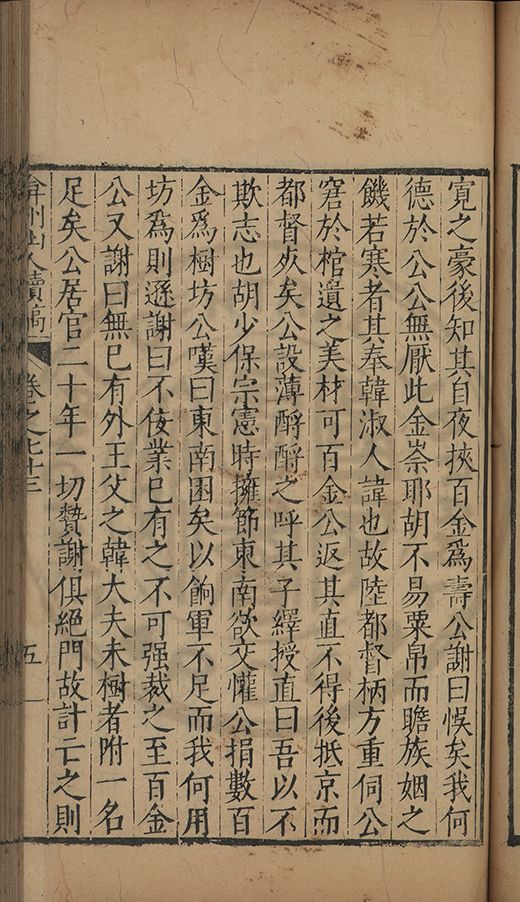 寛之豪後知其自夜挾百金爲壽公謝曰悞矣我何
德於公公無厭此金祟耶胡不易粟帛而贍族姻之
饑若寒者其奉韓淑人諱也故陸都督柄方重伺公
窘於棺遺之美材可百金公返其直不得後抵京而
都督殀矣公設薄酹酹之呼其子繹授直曰吾以不
欺志也胡少保宗憲時擁節東南欲交懽公捐數百
金爲樹坊公嘆曰東南困矣以餉軍不足而我何用
坊爲則遜謝曰不佞業已有之不可强裁之至百金
公又謝曰無已有外王父之韓大夫未樹者附一名
足矣公居官二十年一切贄謝俱絕門故計亡之則
弇州山人續稿
卷之七十三
五